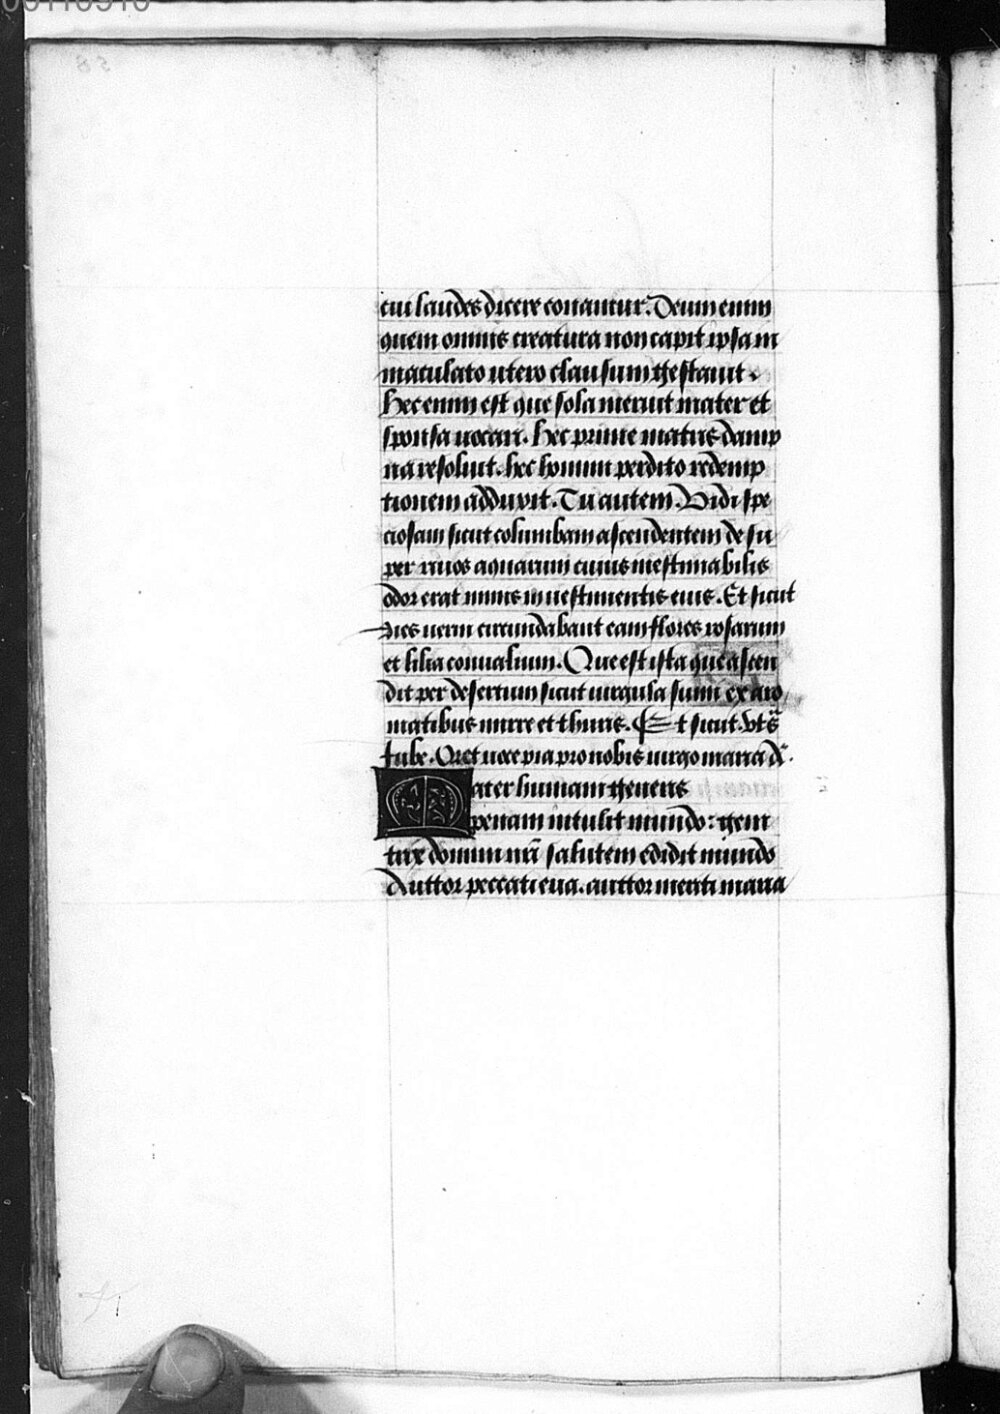 cui laudes dicere conantur. Deum enim
quem omnis creatura non capit ipsa in
maculato utero clausum gestauit.
Hec enim est que sola meruit mater et
sponsa uocari. Hec prime matris damp
na resoluit. hec homini perdito redemp
tionem adduxit. Tu autem. Vidi spe
ciosam sicut columbam ascendentem de su
per riuos aquarum cuius inestimabilis
odor erat nimis in uestimentis eius. Et sicut
dies uerni circundabant eam flores rosarum
et lilia conualium. Que est ista que ascen
dit per desertum sicut uirgula fumi ex aro
matibus mirre et thuris. Et sicut. Vts̄
Iube. Oret uoce pia pro nobis uirgo maria
Mater humani generis
penam intulit mundo: geni
trix domini nr̄i salutem edidit mundo
Auttor peccati eua. auttor meriti maria